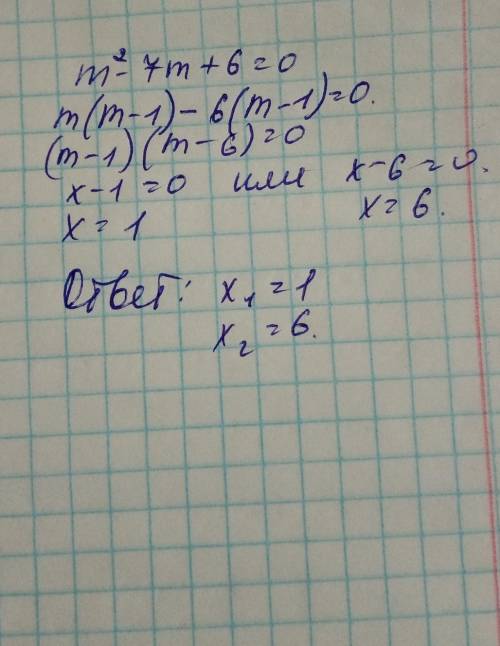 m² - 7m + 6 = 0
m(m-1) - 6(m-1) = 0.
(m-1)(m-6) = 0
x-1 = 0 или x-6 = 0.
x = 1 x = 6.
Ответ: x₁ = 1
x₂ = 6.